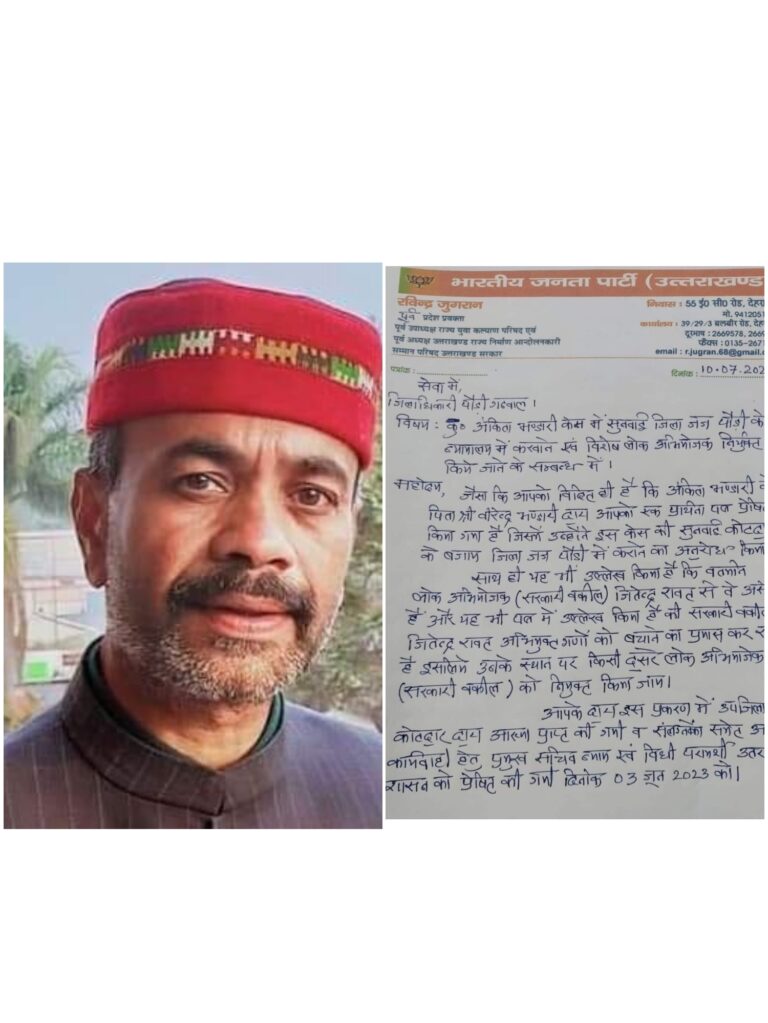 भारतीय जनता पार्टी (उत्तराखण्ड
रविन्द्र जुगरान
पूर्व प्रदेश प्रवक्ता
पूर्व उपाध्यक्ष राज्य युवा कल्याण परिषद एवं
पूर्व अध्यक्ष उत्तराखण्ड राज्य निर्माण आन्दोलनकारी
सम्मान परिषद उत्तराखण्ड सरकार
निवास : 55 ई0 सी0 रोड, देहरा
मो. 9412051
कार्यालय : 39/29/3 बलबीर रोड, दे
दूरभाष : 2669578, 2669
फैक्स : 0135-267
email : r.jugran.68@gmail.co
पत्रांक :
दिनांक : 10.07.202
सेवा में,
जिलाधिकारी पौड़ी गढ़वाल।
विषय : कु0 अंकिता भण्डारी केस में सुनवाई जिला जज पौड़ी के
न्यायालय में करवाने एवं विशेष लोक अभियोजक नियुक्त
किये जाने के सम्बन्ध में।
महोदय, जैसा कि आपको विदित ही है कि अंकिता भण्डारी के
पिता श्री वीरेन्द्र भण्डारी द्वारा आपको एक प्रार्थना पत्र प्रेषि
किया गया है जिसमें उन्होंने इस केस की सुनवाई कोटद्वा
के बजाय जिला जज पौड़ी में कराने का अनुरोध किया
साथ ही यह भी उल्लेख किया है कि वर्तमान
लोक अभियोजक (सरकारी वकील) जितेन्द्र रावत से वे असं
हैं और यह भी पत्र में उल्लेख किया है की सरकारी वकील
जितेन्द्र रावत अभियुक्त गणों को बचाने का प्रयास कर र
है इसलिये उनके स्थान पर किसी दूसरे लोक अभियोजक
(सरकारी वकील) को नियुक्त किया जाय।
आपके द्वारा इस प्रकरण में उपजिला
कोटद्वार द्वारा आख्या प्राप्त की गयी व संलग्नकों समेत अ
कार्यवाही हेतु प्रमुख सचिव न्याय एवं विधी परामर्शी उत्तर
शासन को प्रेषित की गयी दिनांक 03 जून 2023 को।